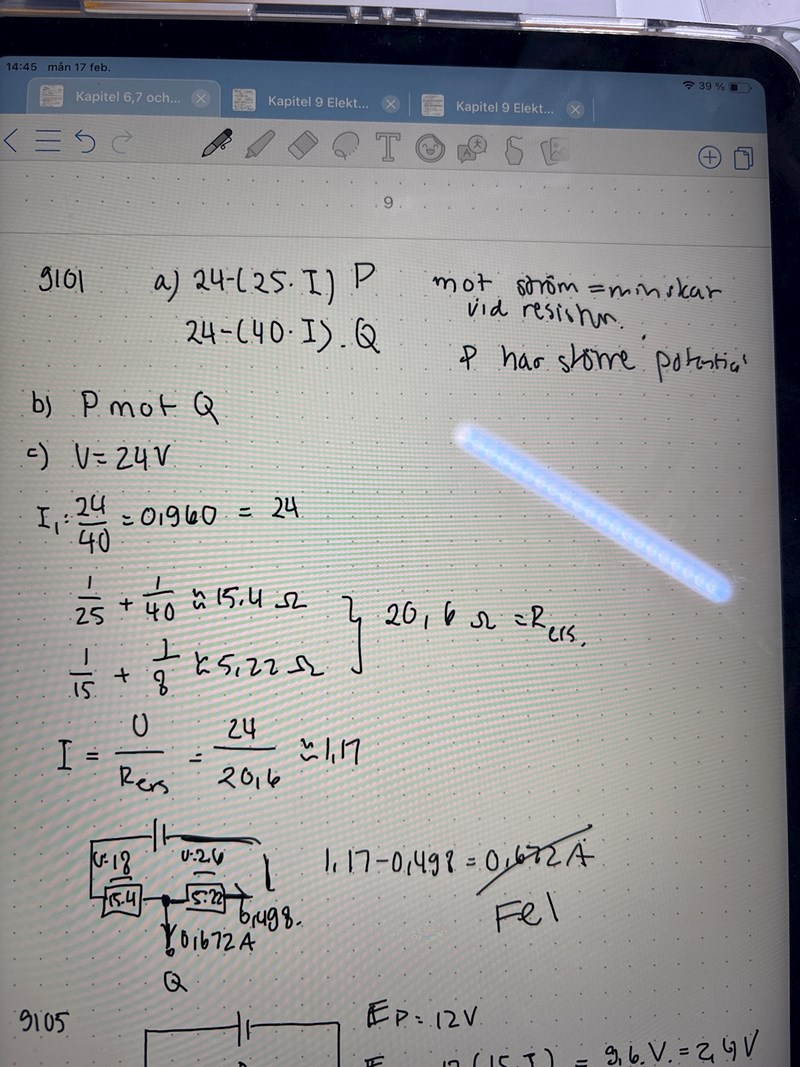 14:45 mån 17 feb.
39 %
Kapitel 6,7 och...
Kapitel 9 Elekt...
Kapitel 9 Elekt...
9
9101 a) 24-(25·I) P
24-(40·I). Q
mot ström = minskar
vid resistorn.
P har större potential
b) P mot Q
c) U=24V
I₁: 24/40 = 0,960 = 24
1/25 + 1/40 ≈ 15.4 Ω
1/15 + 1/8 ≈ 5,22 Ω
20,6 Ω = Rers.
I = U/Rers = 24/20,6 ≈ 1,17
U=18
15.4
5.22
0,498.
0,672A
Q
1,17-0,498 = 0,672 A
Fel
9105
EP = 12V
= 9,6.V. = 2,4V